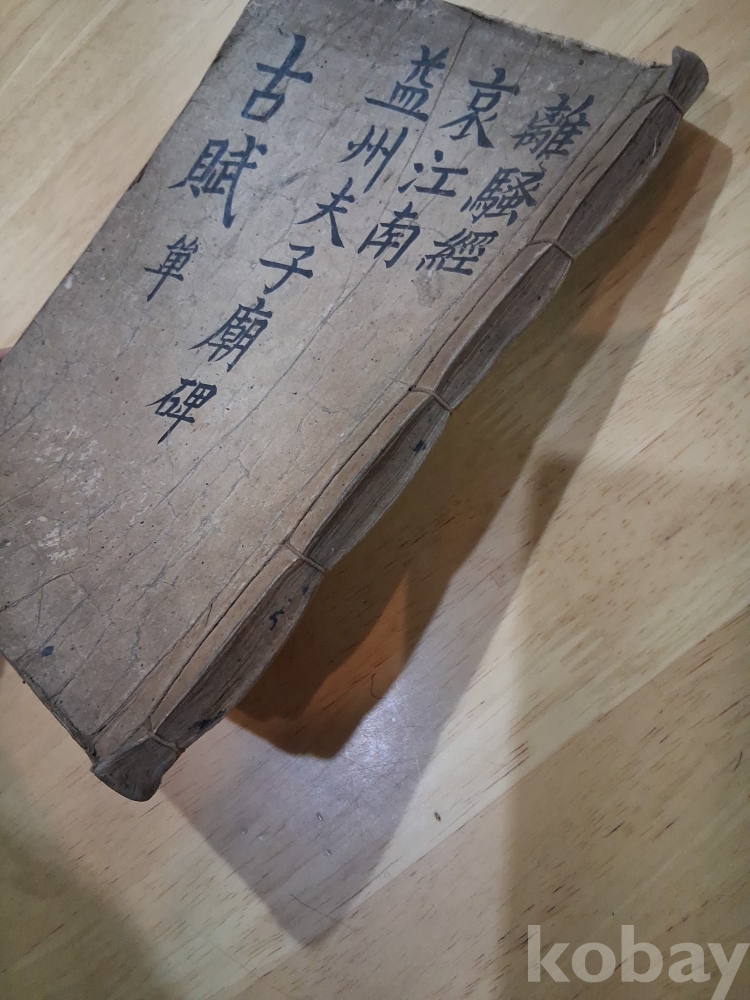 離騷經
哀江南
益州夫子廟碑
古賦
單
kobay